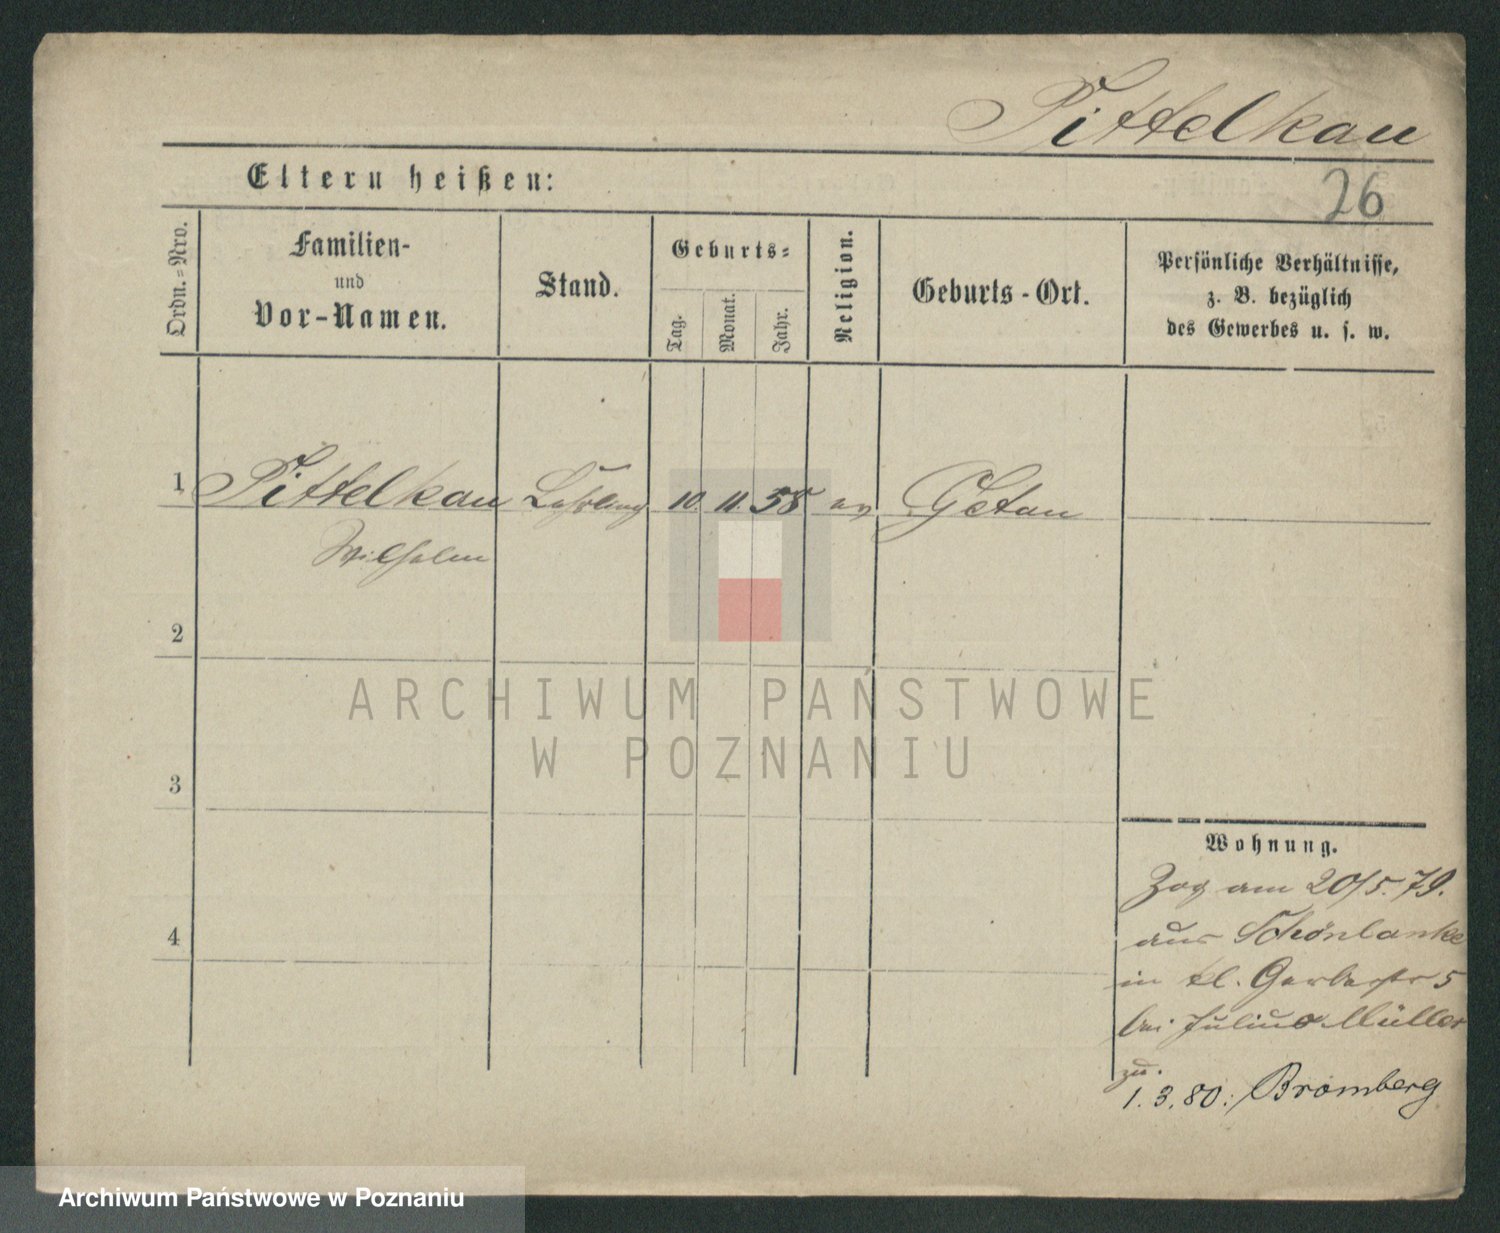 Pittelkau
Eltern heißen:
26
Ordn.=Nro.
Familien-
und
Vor-Namen.
Stand.
Geburts=
Tag.
Monat.
Jahr.
Religion.
Geburts-Ort.
Persönliche Verhältnisse,
z. B. bezüglich
des Gewerbes u. s. w.
1 Pittelkau Lehrling 10. 11. 58 ev
Wilhelm
2
3
4
ARCHIWUM PAŃSTWOWE
W POZNANIU
Wohnung.
Zog am 20/5. 79.
aus Schönlanke
in kl. Gerberstr 5
bei Julius Müller
zu.
1. 3. 80: Bromberg
Archiwum Państwowe w Poznaniu